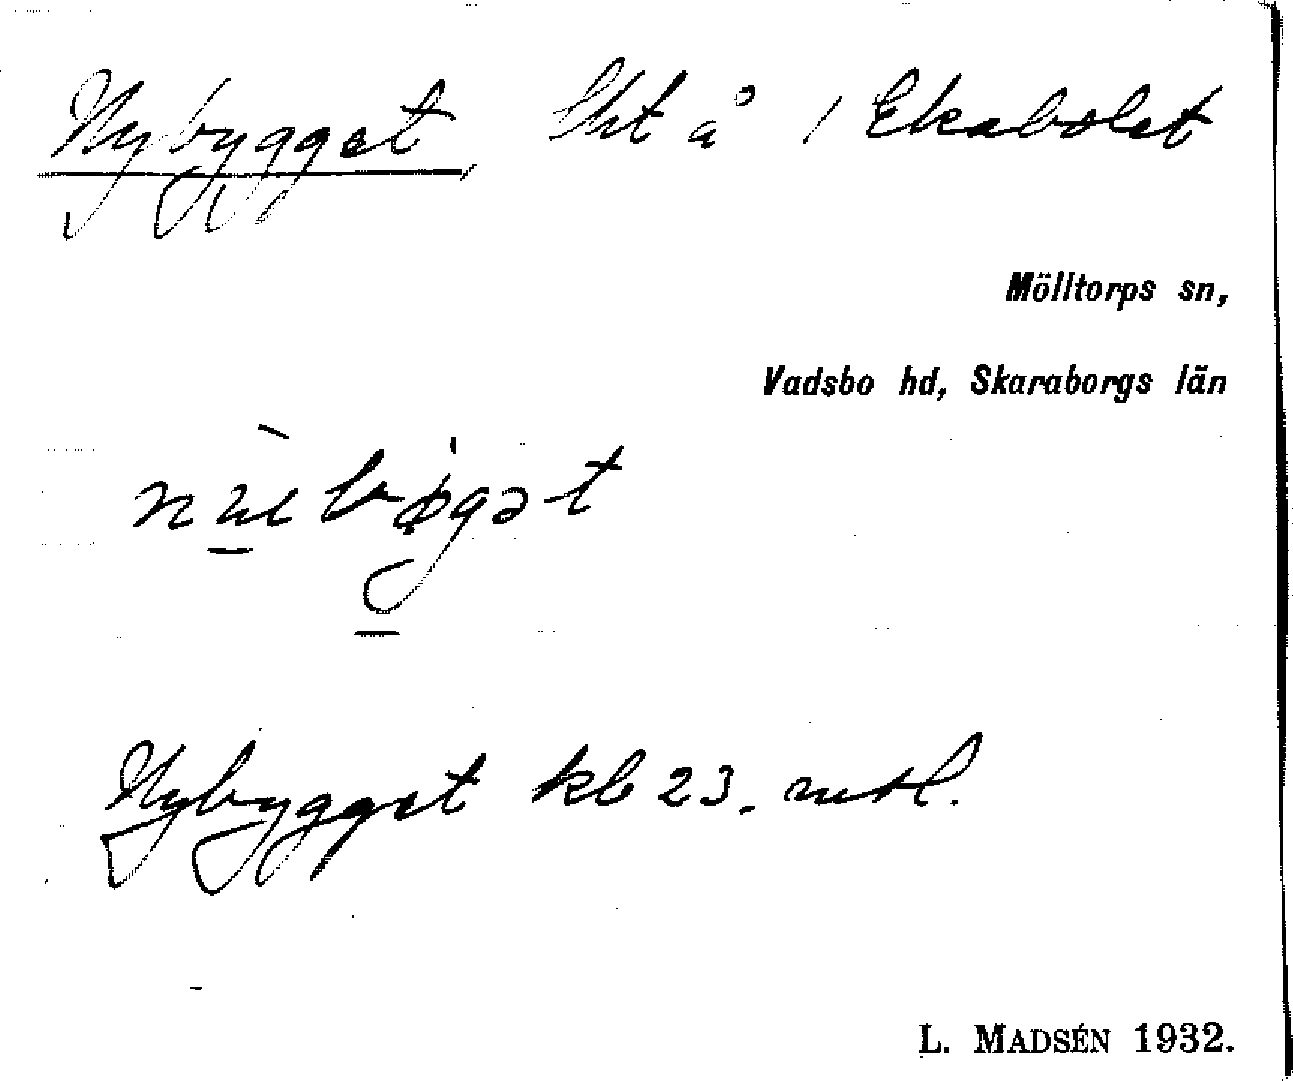 Nybygget, lht å 1 Ekabolet
Mölltorps sn,
Vadsbo hd, Skaraborgs län
Nybygget kb 23. mtl.
L. MADSÉN 1932.